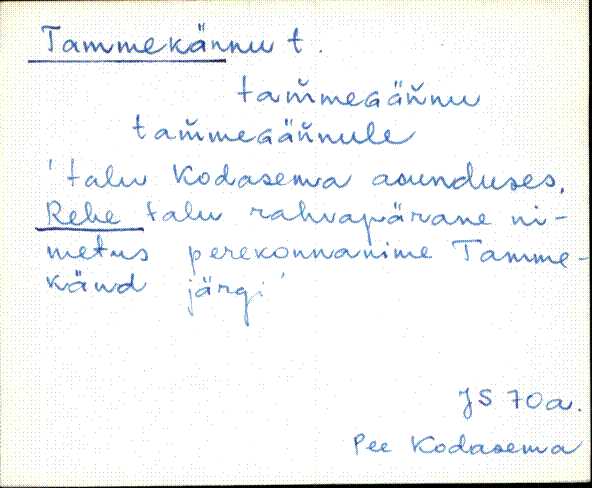 Tammekännu t.
tam̆megän̆nu
tam̆megän̆nule
'talu Kodasema asunduses,
Rehe talu rahvapärane ni-
metus perekonnanime Tamme-
känd järgi'
JS 70a.
Pee Kodasema